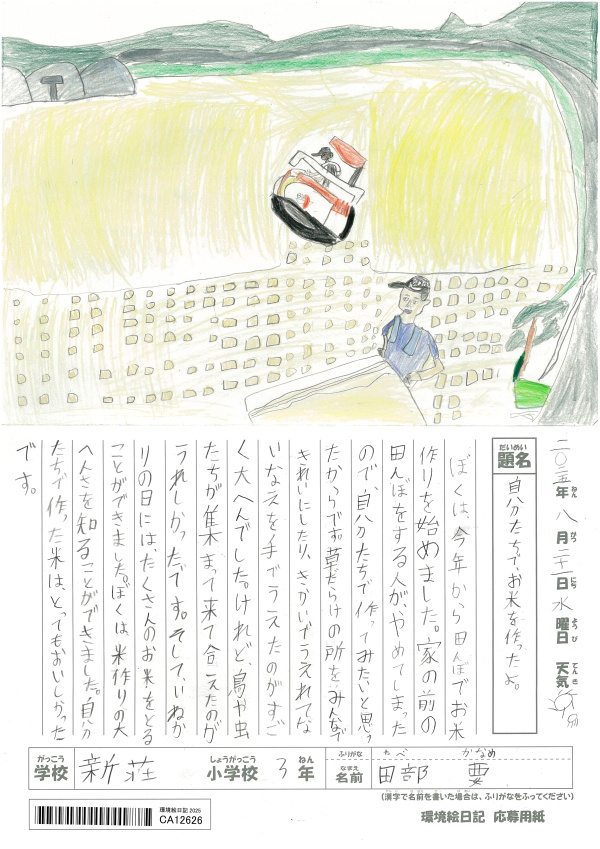 二〇二五年 八月二十日 水曜日 天気
ねん がつ にち ようび てんき
だいめい
題名
自分たちで、お米を作ったよ。
ぼくは、今年から田んぼでお米
作りを始めました。家の前の
田んぼをする人が、やめてしまった
ので、自分たちで作ってみたいと思っ
たからです。草だらけの所をみんなで
きれいにしたり、きかいでうえれてな
いなえを手でうえたのがすご
く大へんでした。けれど、鳥や虫
たちが集まって来て合えたのが
うれしかったです。そして、いねか
りの日には、たくさんのお米をとる
ことができました。ぼくは、米作りの大
へんさを知ることができました。自分
たちで作った米は、とってもおいしかった
です。
がっこう
学校 新荘
しょうがっこう ねん
小学校 3年
ふりがな たべ かなめ
なまえ
名前 田部 要
(漢字で名前を書いた場合は、ふりがなをふってください)
環境絵日記 2025
CA12626
環境絵日記 応募用紙